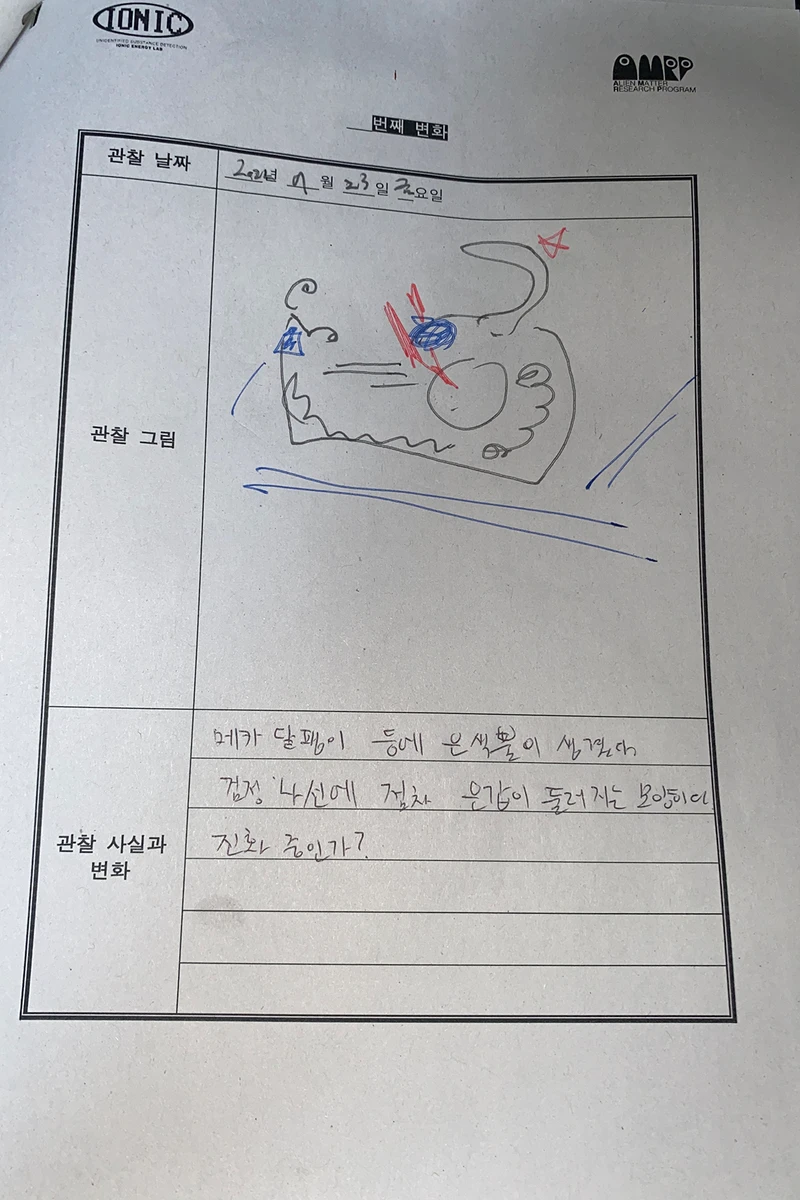 IONIC
UNIDENTIFIED SUBSTANCE DETECTION
IONIC ENERGY LAB
AMRP
ALIEN MATTER
RESEARCH PROGRAM
번째 변화
관찰 날짜
년 월 23일 금요일
관찰 그림
메카 달팽이 등에 은색뿔이 생겼다
검정 나선에 점차 은갑이 둘러지는 모양이다
진화 중인가?
관찰 사실과
변화